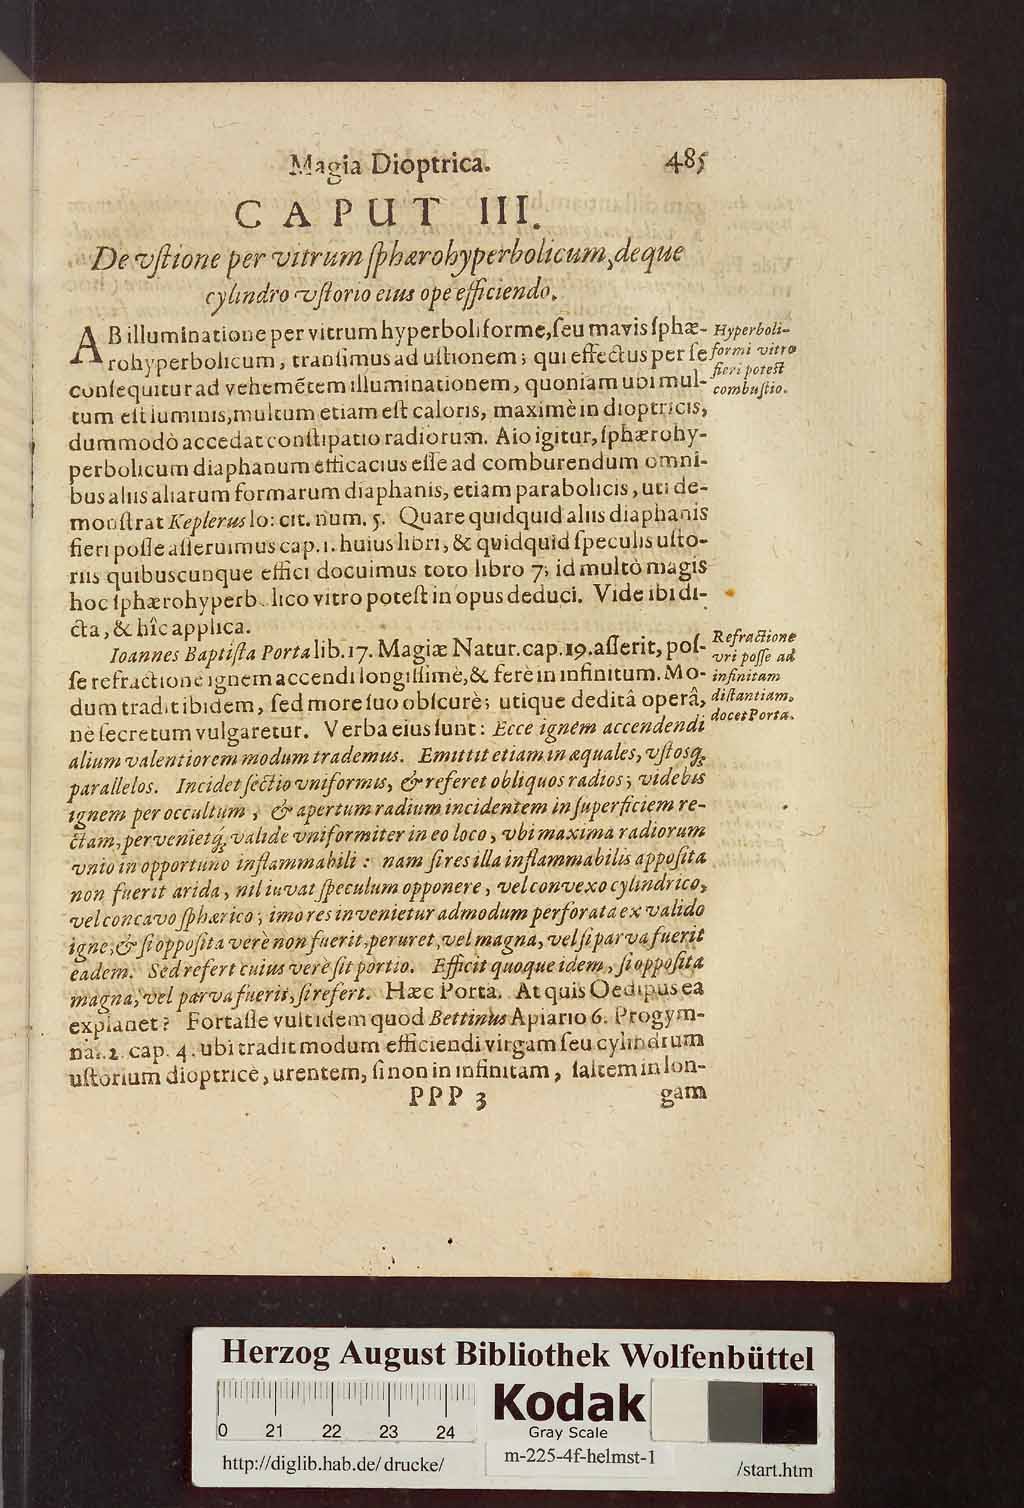 Magia Dioptrica. 485
CAPUT III.
De vſtione per vitrum ſphærohyperbolicum, deque
cylindro vſtorio eius ope efficiendo.
AB illuminatione per vitrum hyperboliforme, ſeu mavis ſphæ-
rohyperbolicum, tranſimus ad uſtionem; qui effectus per ſe
conſequitur ad vehemẽtem illuminationem, quoniam ubi mul-
tum eſt luminis, multum etiam eſt caloris, maximè in dioptricis,
dummodò accedat conſtipatio radiorum. Aio igitur, ſphærohy-
perbolicum diaphanum efficacius eſſe ad comburendum omni-
bus aliis aliarum formarum diaphanis, etiam parabolicis, uti de-
monſtrat Keplerus lo: cit. num. 5. Quare quidquid aliis diaphanis
fieri poſſe aſſeruimus cap. 1. huius libri, & quidquid ſpeculis uſto-
riis quibuscunque effici docuimus toto libro 7; id multò magis
hoc ſphærohyperb lico vitro poteſt in opus deduci. Vide ibi di-
cta, & hîc applica.
Hyperboli-
formi vitro
fieri poteſt
combuſtio.
Ioannes Baptiſta Porta lib. 17. Magiæ Natur. cap. 19. aſſerit, poſ-
ſe refractione ignem accendi longiſſimè, & ferè in infinitum. Mo-
dum tradit ibidem, ſed more ſuo obſcurè; utique deditâ operâ,
nè ſecretum vulgaretur. Verba eius ſunt: Ecce ignem accendendi
alium valentiorem modum trademus. Emittit etiam in æquales, vſtosq;
parallelos. Incidet ſectio vniformis, & referet obliquos radios; videbis
ignem per occultum, & apertum radium incidentem in ſuperficiem re-
ctam, pervenietq; valide vniformiter in eo loco, vbi maxima radiorum
vnio in opportuno inflammabili: nam ſi res illa inflammabilis appoſita
non fuerit arida, nil iuvat ſpeculum opponere, vel convexo cylindrico,
vel concavo ſphærico; imo res invenietur admodum perforata ex valido
igne; & ſi oppoſita verè non fuerit, peruret, vel magna, vel ſi parva fuerit
eadem. Sed refert cuius verè ſit portio. Efficit quoque idem, ſi oppoſita
magna, vel parva fuerit, ſi refert. Hæc Porta. At quis Oedipus ea
explanet? Fortaſſe vult idem quod Bettinus Apiario 6. Progym-
naſ. 2. cap. 4. ubi tradit modum efficiendi virgam ſeu cylindrum
uſtorium dioptricè, urentem, ſi non in infinitam, ſaltem in lon-
Refractione
vri poſſe ad
infinitam
diſtantiam,
docet Porta.
PPP 3 gam
Herzog August Bibliothek Wolfenbüttel
0 21 22 23 24
Kodak
Gray Scale
http://diglib.hab.de/drucke/
m-225-4f-helmst-1
/start.htm